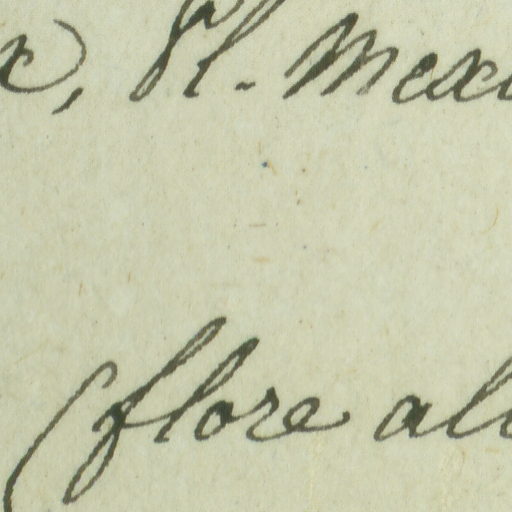 Pl. Mexi
(flore al